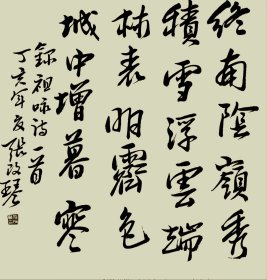 終南陰嶺秀
積雪浮雲端
林表明霽色
城中增暮寒
錄祖咏詩一首
丁亥年夏張改琴